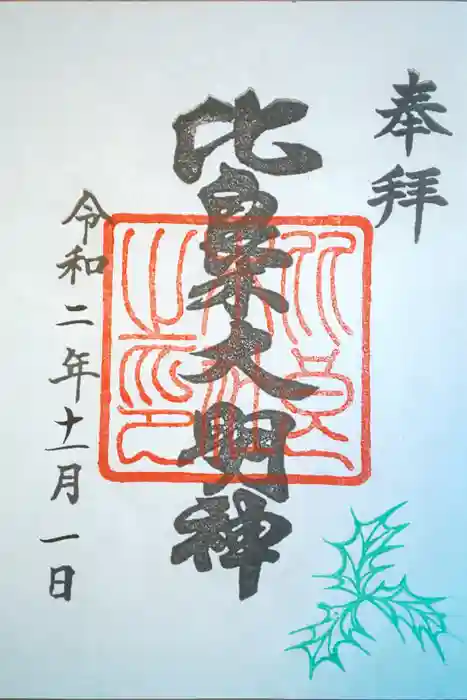 奉拝
比良木大明神
令和二年十一月一日